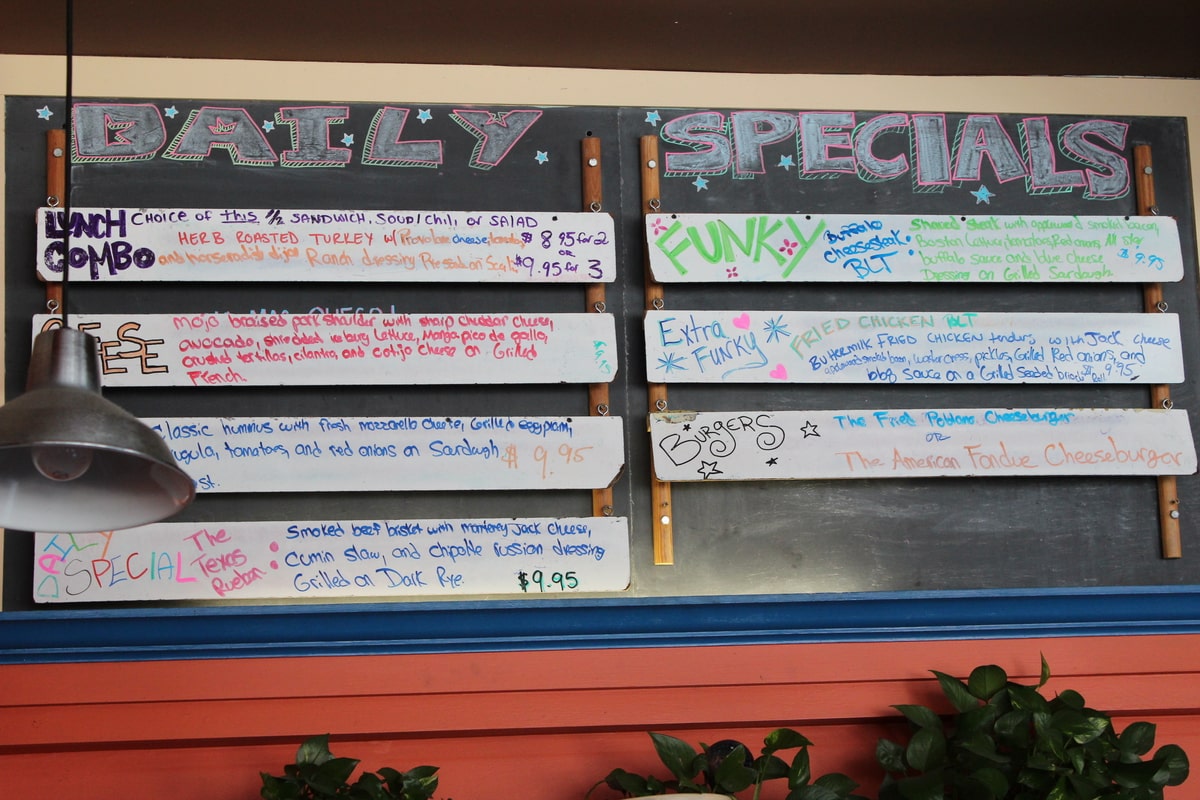 DAILY SPECIALS
LUNCH COMBO
CHOICE OF this 1/2 SANDWICH, SOUP/Chili, or SALAD
HERB ROASTED TURKEY w/ Provolone cheese, tomato, $8.95 for 2
OR
and horseradish dijon Ranch dressing Pressed on $9.95 for 3
MAC CHEESE!
mojo braised pork shoulder with sharp cheddar cheese,
avocado, shredded iceburg lettuce, Mango pico de gallo,
crushed tortillas, cilantro, and cotija cheese on Grilled
French.
Classic hummus with fresh mozzarella cheese, Grilled eggplant,
tomatoes, and red onions on Sourdough $9.95
DAILY SPECIAL
The Texas Rueban :
Smoked beef brisket with monterey Jack cheese,
cumin slaw, and chipotle russian dressing
Grilled on Dark Rye. $9.95
FUNKY
Buffalo cheesesteak BLT :
Shaved steak with applewood smoked bacon,
Boston lettuce, tomatoes, Red onions
buffalo sauce and blue cheese $9.95
Dressing on Grilled Sourdough
Extra FUNKY
FRIED CHICKEN BLT
Buttermilk FRIED CHICKEN tenders with Jack cheese
applewood smoked bacon, watercress, pickles, Grilled Red onions, and
bbq sauce on a Grilled Seeded Roll 9.95
BURGERS
The Fried Poblano Cheeseburger
OR
The American Fondue Cheeseburger